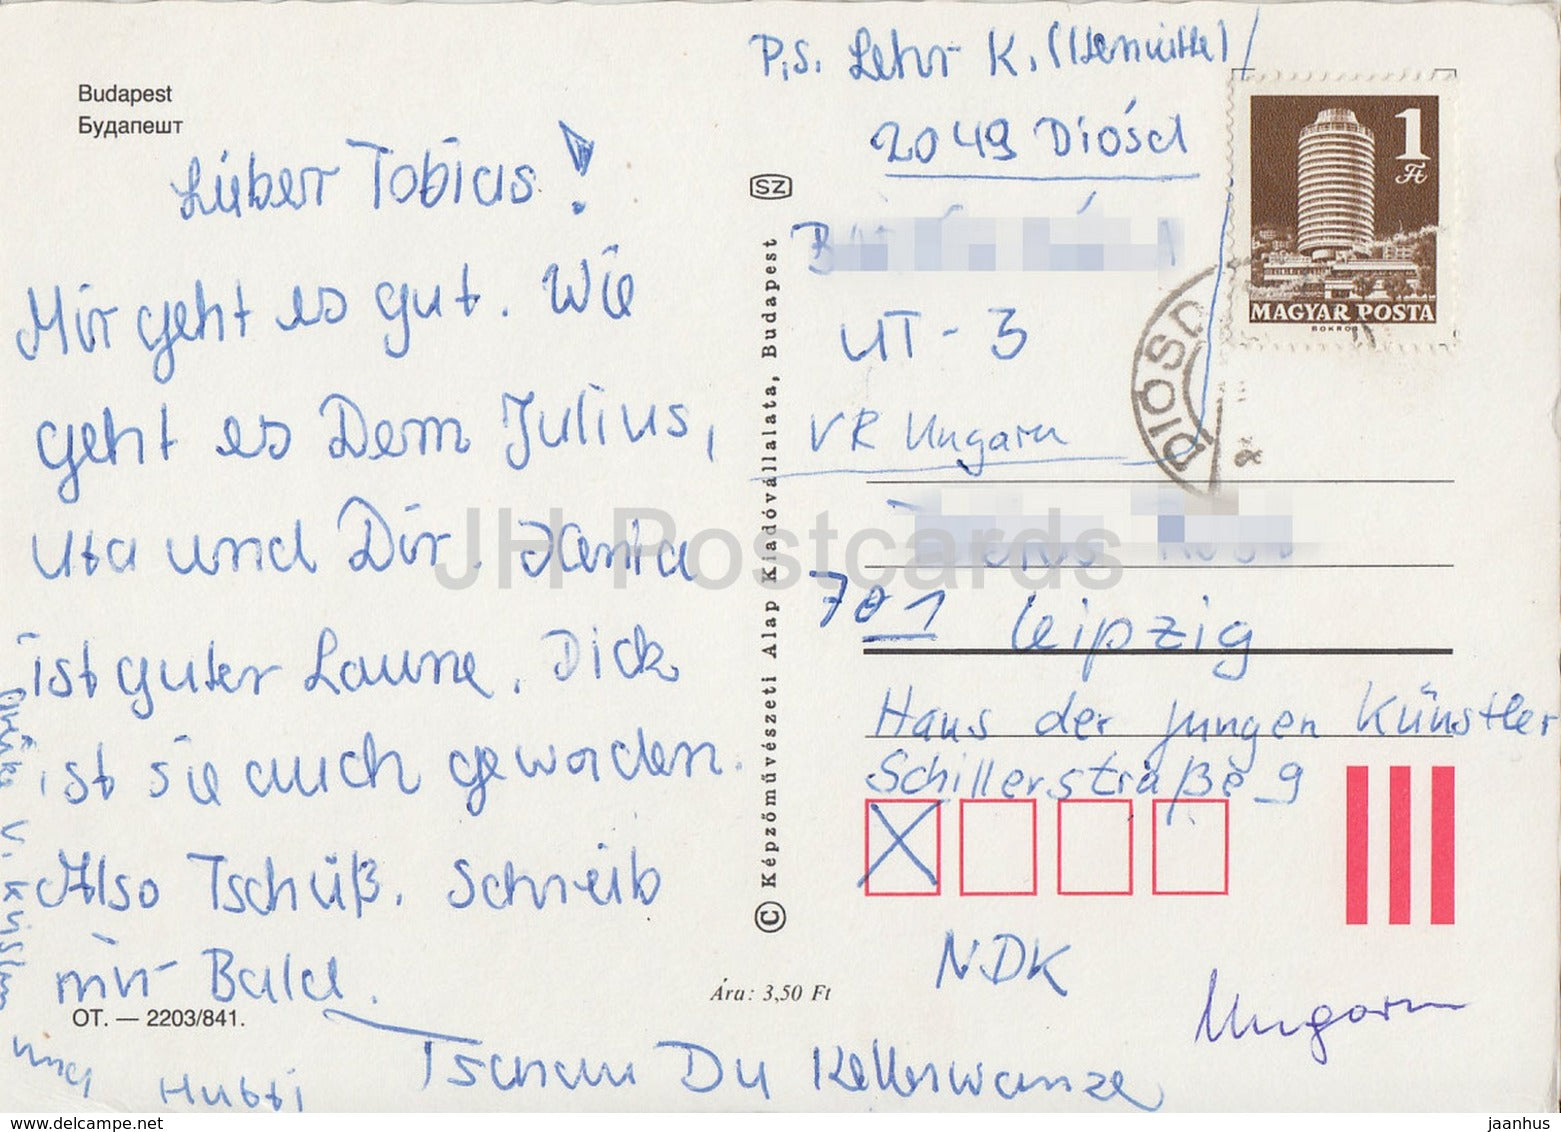 Budapest
Будапешт
Lieber Tobias!
Mir geht es gut. Wie
geht es Dem Julius,
Uta und Dir. Xenia
ist guter Laune. Dick
ist sie auch geworden.
Also Tschüß. Schreib
mir Bald.
Tschau Du Kellerwanze
OT. — 2203/841.
Grüße v. Kristin
und Hubti
SZ
© Képzőművészeti Alap Kiadóvállalata, Budapest
Ára: 3,50 Ft
P.S. Lehr K.
2049 Diósd
UT - 3
VR Ungarn
1
Ft
MAGYAR POSTA
BOKROS
DIÓSD
701 Leipzig
Haus der jungen Künstler
Schillerstraße 9
NDK
Ungarn
JH Postcards
www.delcampe.net
jaanhus